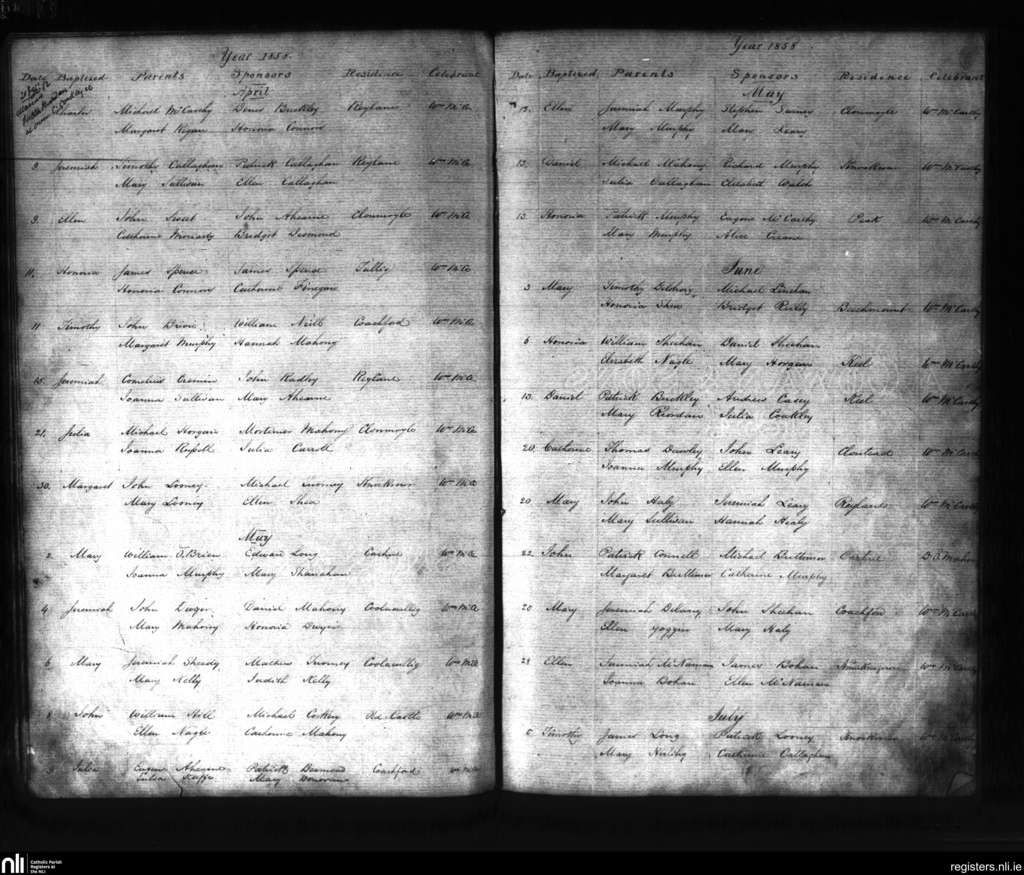 Year 1858
Date Baptized Parents Sponsors Residence Celebrant
April
Charles Michael McCarthy Denis Buckley Reylane Wm McC
Margaret Regan Honoria Connor
9 Jeremiah Timothy Callaghan Patrick Callaghan Reylane Wm McC
Mary Sullivan Ellen Callaghan
9. Ellen John Sweet John Ahearne Clonmoyle Wm McC
Catherine Moriarty Bridget Desmond
11. Honoria James Spence James Spence Tullig Wm McC
Honoria Connor Catherine Finegan
11 Timothy John Brien William Neill Coachford Wm McC
Margaret Murphy Hannah Mahony
15. Jeremiah Cornelius Cremin John Radley Reylane Wm McC
Joanna Sullivan Mary Ahearne
21. Julia Michael Horgan Mortimer Mahony Clonmoyle Wm McC
Joanna Russell Julia Carroll
30. Margaret John Looney Michael Twomey Wm McC
Mary Looney Ellen Shea
May
2. Mary William O'Brien Edward Long Carhue Wm McC
Joanna Murphy Mary Shanahan
4. Jeremiah John Dwyer Daniel Mahony Wm McC
Mary Mahony Honoria Dwyer
6. Mary Jeremiah Sheedy Mathew Twomey Wm McC
Mary Kelly Judith Kelly
8 John William Hill Michael Old Castle Wm McC
Ellen Nagle Catherine Mahony
9 Julia Ahearne Patrick Desmond Coachford Wm McC
Mary Donovan
Year 1858
Date Baptized Parents Sponsors Residence Celebrant
May
12. Ellen Jeremiah Murphy Stephen Clonmoyle Wm McCarthy
Mary Murphy Mary Leary
13. Daniel Michael Mahony Richard Murphy Wm McCarthy
Julia Callaghan Elizabeth Walsh
13. Honoria Patrick Murphy Eugene McCarthy Peak Wm McCarthy
Mary Murphy Alice
June
3 Mary Timothy Michael Linehan
Honoria Shea Bridget Reilly Beechmount Wm McCarthy
6 Honoria William Sheehan Daniel Sheehan
Elizabeth Nagle Mary Horgan Keel Wm McCarthy
13. Daniel Patrick Buckley Andrew Casey Keel Wm McCarthy
Mary Riordan Julia Coakley
20. Catherine Thomas Dawley John Leary Wm McCarthy
Joanna Murphy Ellen Murphy
20 Mary John Haly Jeremiah Leary Reylane Wm McCarthy
Mary Sullivan Hannah Healy
22. John Patrick Connell Michael Buttimer Carhue
Margaret Buttimer Catherine Murphy
20 Mary Jeremiah Delany John Sheehan Coachford Wm McCarthy
Ellen Mary Haly
28 Ellen Jeremiah McNamara James Bohan Wm McCarthy
Joanna Bohan Ellen McNamara
July
Timothy James Long Patrick Looney Wm McCarthy
Mary Catherine Callaghan
nli
Catholic Parish
Registers at
the NLI
registers.nli.ie